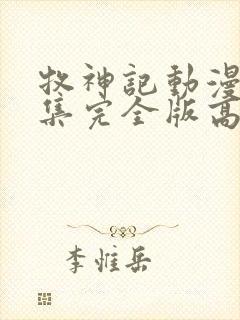 牧神記動漫
集完全版高
李惟岳